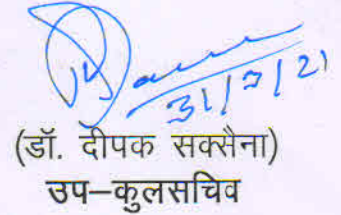 31/7/21
(डॉ. दीपक सक्सैना)
उप–कुलसचिव